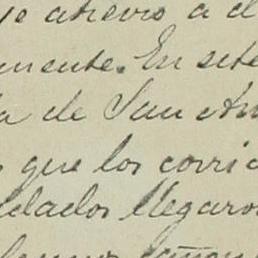 se atrevió a d
mente. En sete
a de San An
que los corri
dados llegaro